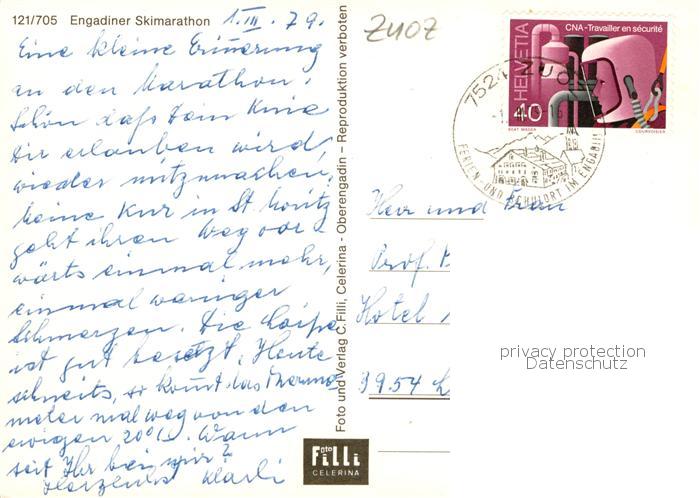 121/705 Engadiner Skimarathon 1.III.79.
Eine kleine Erinnerung
an den Marathon.
Schön daß Dein Knie
Dir erlauben wird,
wieder mitzumachen,
Meine Kur in St. Moritz
geht ihren Weg vor-
wärts einmal mehr,
einmal weniger
Schmerzen. Die Loipe
ist gut besetzt. Heute
schneits, so kommt das Thermo-
meter mal weg von den
ewigen 20°C. Wann
seit Ihr bei mir?
Herzlichst Klärli
Foto und Verlag C. Filli, Celerina - Oberengadin - Reproduktion verboten
Foto
Filli
CELERINA
ZUOZ
HELVETIA
CNA - Travailler en sécurité
40
BEAT MÄDER
COURVOISIER
7524 ZUOZ
FERIEN- UND SCHULORT IM ENGADIN
Herr und Frau
Prof.
Hotel
9954
privacy protection
Datenschutz